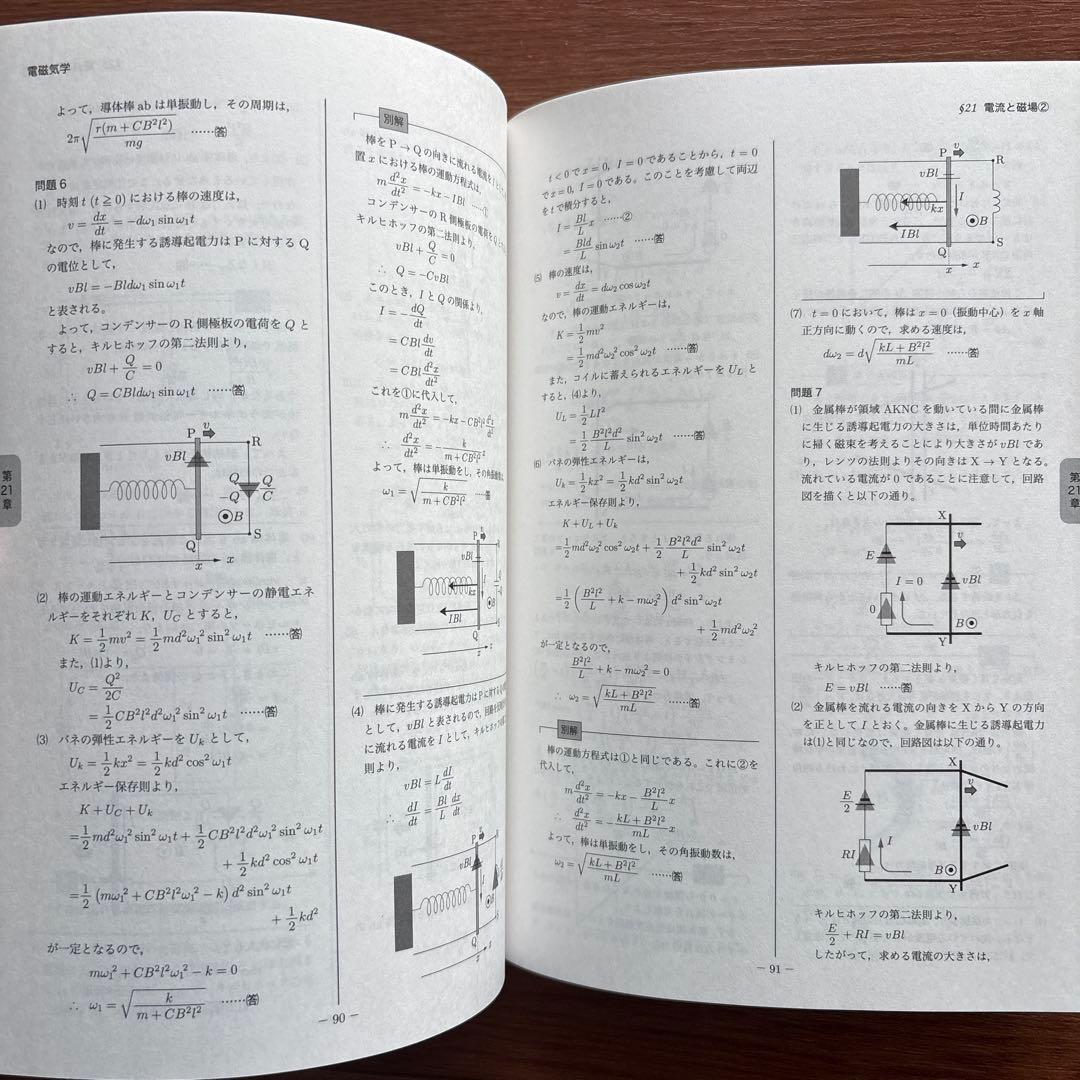 電磁気学
よって，導体棒 ab は単振動し，その周期は，
2π√(r(m+CB²l²)/mg) ……答
問題 6
(1) 時刻 t (t≧0) における棒の速度は，
v = dx/dt = −dω₁ sin ω₁t
なので，棒に発生する誘導起電力は P に対する Q
の電位として，
vBl = −Bldω₁ sin ω₁t
と表される。
よって，コンデンサーの R 側極板の電荷を Q と
すると，キルヒホッフの第二法則より，
vBl + Q/C = 0
∴ Q = CBldω₁ sin ω₁t ……答
P v R
vBl
Q Q/C
−Q
B
Q S
x x
第21章
(2) 棒の運動エネルギーとコンデンサーの静電エネ
ルギーをそれぞれ K，U_C とすると，
K = 1/2 mv² = 1/2 md²ω₁² sin² ω₁t ……答
また，(1)より，
U_C = Q²/2C
= 1/2 CB²l²d²ω₁² sin² ω₁t ……答
(3) バネの弾性エネルギーを U_k として，
U_k = 1/2 kx² = 1/2 kd² cos² ω₁t
エネルギー保存則より，
K + U_C + U_k
= 1/2 md²ω₁² sin² ω₁t + 1/2 CB²l²d²ω₁² sin² ω₁t
+ 1/2 kd² cos² ω₁t
= 1/2 (mω₁² + CB²l²ω₁² − k) d² sin² ω₁t
+ 1/2 kd²
が一定となるので，
mω₁² + CB²l²ω₁² − k = 0
∴ ω₁ = √(k/(m+CB²l²)) ……答
別解
棒を P → Q の向きに流れる電流を
置 x における棒の運動方程式は，
m d²x/dt² = −kx − IBl ……①
コンデンサーの R 側極板の電荷を Q
キルヒホッフの第二法則より，
vBl + Q/C = 0
∴ Q = −CvBl
このとき，I と Q の関係より，
I = −dQ/dt
= CBl dv/dt
= CBl d²x/dt²
これを①に代入して，
m d²x/dt² = −kx − CB²l² d²x/dt²
∴ d²x/dt² = −k/(m+CB²l²) x
よって，棒は単振動をし，その角振動数
ω₁ = √(k/(m+CB²l²)) ……答
P v
vBl
kx I
IBl B
Q
x x
(4) 棒に発生する誘導起電力は P に対する Q
として，vBl と表されるので，回路を
に流れる電流を I として，キルヒホッフ
則より，
vBl = L dI/dt
∴ dI/dt = Bl/L dx/dt
P v
vBl
I
B
Q
x x
− 90 −
§21 電流と磁場②
t < 0 で x = 0, I = 0 であることから，t = 0
で x = 0, I = 0 である。このことを考慮して両辺
を t で積分すると，
I = Bl/L x ……②
= Bld/L sin ω₂t ……答
(5) 棒の速度は，
v = dx/dt = dω₂ cos ω₂t
なので，棒の運動エネルギーは，
K = 1/2 mv²
= 1/2 md²ω₂² cos² ω₂t ……答
また，コイルに蓄えられるエネルギーを U_L と
すると，(4)より，
U_L = 1/2 LI²
= 1/2 B²l²d²/L sin² ω₂t ……答
(6) バネの弾性エネルギーは，
U_k = 1/2 kx² = 1/2 kd² sin² ω₂t
エネルギー保存則より，
K + U_L + U_k
= 1/2 md²ω₂² cos² ω₂t + 1/2 B²l²d²/L sin² ω₂t
+ 1/2 kd² sin² ω₂t
= 1/2 (B²l²/L + k − mω₂²) d² sin² ω₂t
+ 1/2 md²ω₂²
が一定となるので，
B²l²/L + k − mω₂² = 0
∴ ω₂ = √((kL+B²l²)/mL) ……答
別解
棒の運動方程式は①と同じである。これに②を
代入して，
m d²x/dt² = −kx − B²l²/L x
∴ d²x/dt² = −(kL+B²l²)/mL x
よって，棒は単振動をし，その角振動数は，
ω₂ = √((kL+B²l²)/mL) ……答
P v R
vBl
kx I
IBl B
Q S
x x
(7) t = 0 において，棒は x = 0（振動中心）を x 軸
正方向に動くので，求める速度は，
dω₂ = d√((kL+B²l²)/mL) ……答
問題 7
(1) 金属棒が領域 AKNC を動いている間に金属棒
に生じる誘導起電力の大きさは，単位時間あたり
に掃く磁束を考えることにより大きさが vBl であ
り，レンツの法則よりその向きは X → Y となる。
流れている電流が 0 であることに注意して，回路
図を描くと以下の通り。
第21章
X
v
E
I = 0 vBl
0
B
Y
キルヒホッフの第二法則より，
E = vBl ……答
(2) 金属棒を流れる電流の向きを X から Y の方向
を正として I とおく。金属棒に生じる誘導起電力
は(1)と同じなので，回路図は以下の通り。
X
v
E/2
vBl
RI I
B
Y
キルヒホッフの第二法則より，
E/2 + RI = vBl
したがって，求める電流の大きさは，
− 91 −